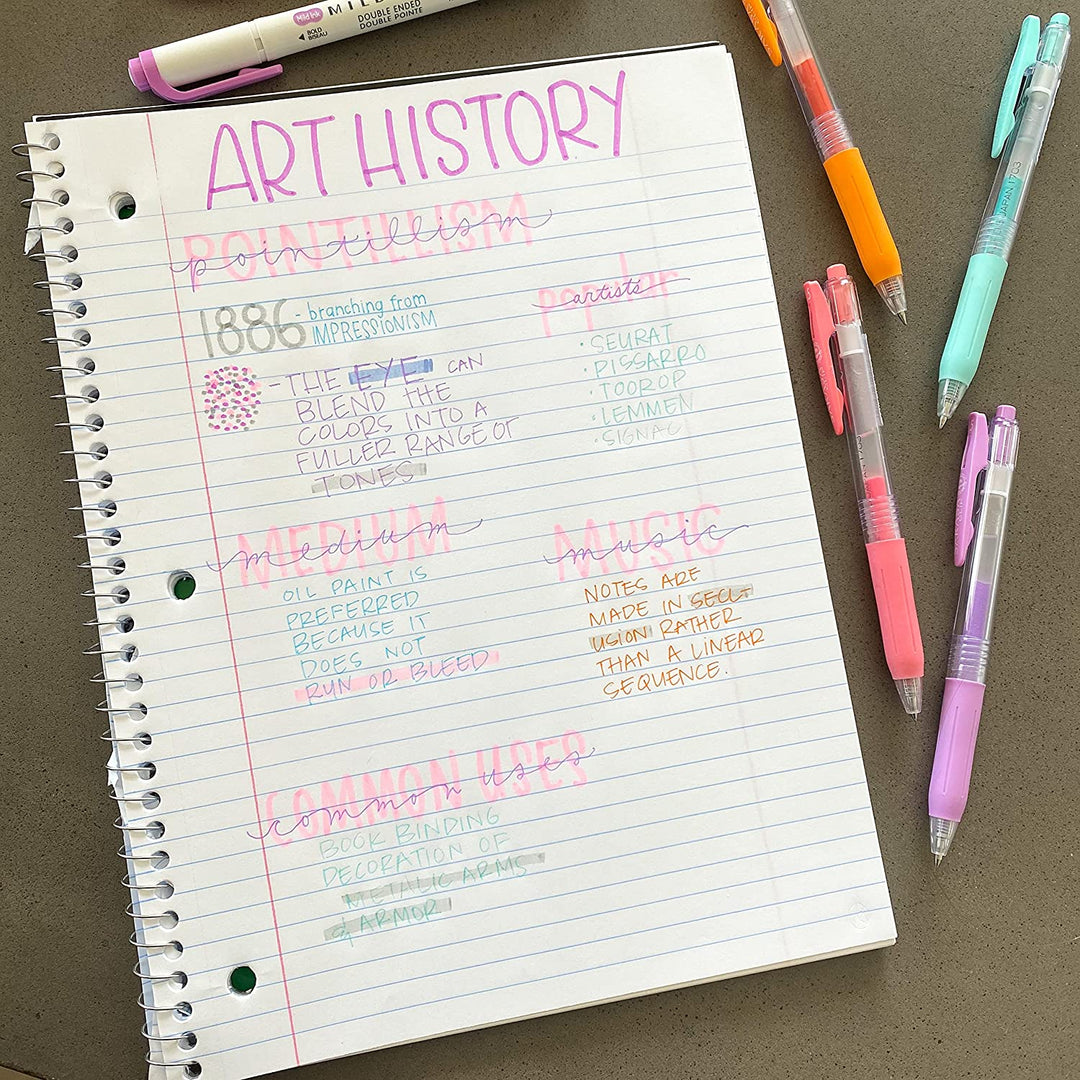 Mild Ink
DOUBLE ENDED
DOUBLE POINTE
BOLD
BISEAU
ART HISTORY
POINTILLISM
pointillism
1886 - branching from
IMPRESSIONISM
- THE EYE CAN
BLEND THE
COLORS INTO A
FULLER RANGE OF
TONES
popular
artists
• SEURAT
• PISSARRO
• TOOROP
• LEMMEN
• SIGNAC
MEDIUM
medium
OIL PAINT IS
PREFERRED
BECAUSE IT
DOES NOT
RUN OR BLEED
MUSIC
music
NOTES ARE
MADE IN SECL-
USION RATHER
THAN A LINEAR
SEQUENCE.
COMMON USES
common uses
BOOK BINDING
DECORATION OF
METALIC ARMS
& ARMOR
JAPAN 1703